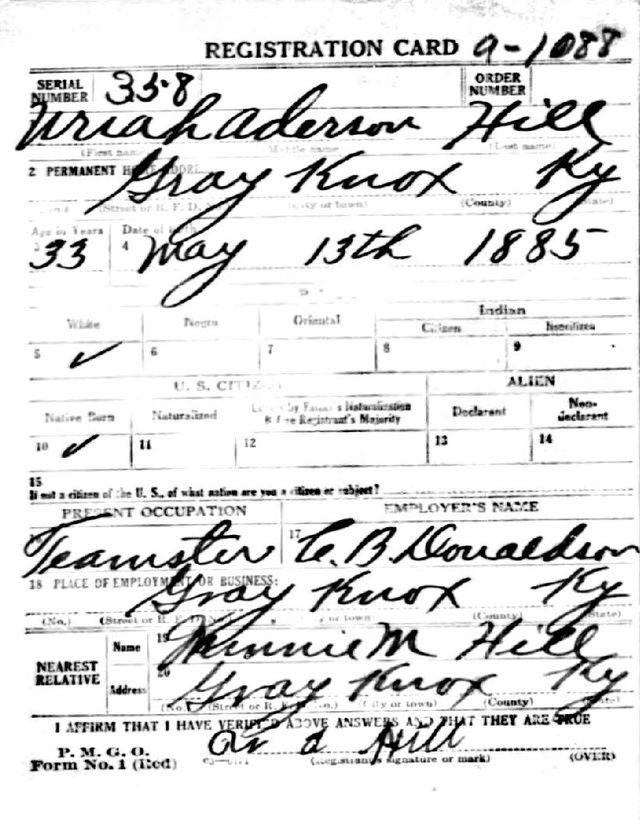 REGISTRATION CARD a-1088
SERIAL NUMBER 358 ORDER NUMBER
Uriah Aderson Hill
(First name) Middle name (Last name)
2 PERMANENT HOME ADDRESS
Gray Knox Ky
(Street or R. F. D. No.) (City or town) (County) (State)
Age in Years Date of Birth
33 4 May 13th 1885
Indian
White Negro Oriental Citizen Noncitizen
5 ✓ 6 7 8 9
U. S. CITIZEN ALIEN
Native Born Naturalized Citizen by Father's Naturalization Before Registrant's Majority Declarant Non-declarant
10 ✓ 11 12 13 14
15
If not a citizen of the U. S., of what nation are you a citizen or subject?
PRESENT OCCUPATION EMPLOYER'S NAME
Teamster 17 C. B. Donaldson
18 PLACE OF EMPLOYMENT OR BUSINESS:
Gray Knox Ky
(No.) (Street or R. F. D. No.) (City or town) (County) (State)
NEAREST RELATIVE Name 19 Minnie M Hill
Address 20 Gray Knox Ky
(No.) (Street or R. F. D. No.) (City or town) (County) (State)
I AFFIRM THAT I HAVE VERIFIED ABOVE ANSWERS AND THAT THEY ARE TRUE
P. M. G. O.
Form No. 1 (Red) Hill
(Registrant's signature or mark) (OVER)